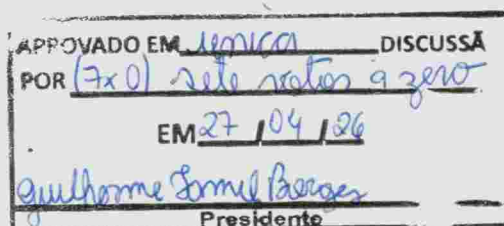 APPROVADO EM única DISCUSSÃ
POR (7x0) sete votos a zero
EM 27 / 04 / 26
Guilherme Borges
Presidente